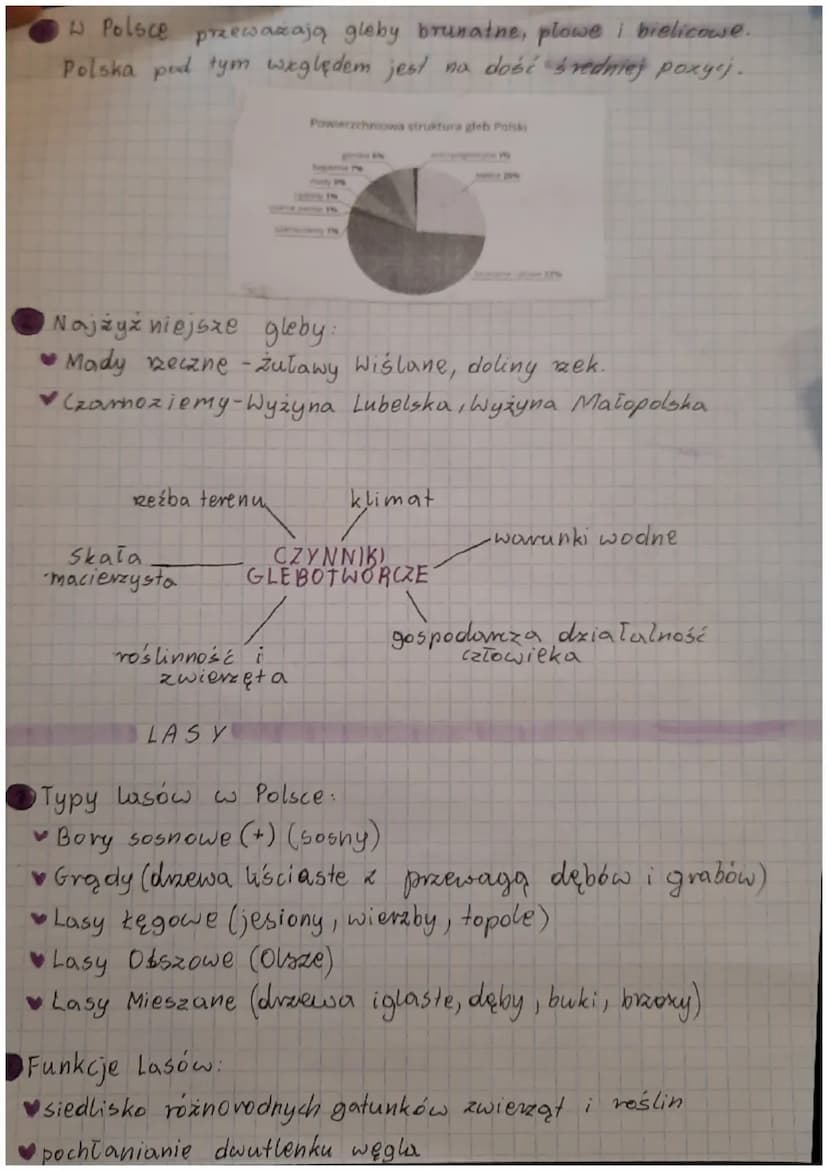 W Polsce przeważają gleby brunatne, płowe i bielicowe.
Polska pod tym względem jest na dość średniej pozycj.
Powierzchniowa struktura gleb Polski
Najżyźniejsze gleby:
Mady rzeczne - żuławy Wiślane, doliny rzek.
Czarnoziemy - Wyżyna Lubelska, Wyżyna Małopolska
rzeźba terenu
klimat
warunki wodne
Skała
macierzysta
CZYNNIKI
GLEBOTWÓRCZE
gospodarcza działalność
człowieka
roślinność i
zwierzęta
LASY
Typy lasów w Polsce:
Bory sosnowe (+) (sosny)
Grądy (drzewa liściaste z przewagą dębów i grabów)
Lasy Łęgowe (jesiony, wierzby, topole)
Lasy Olszowe (Olsze)
Lasy Mieszane (drzewa iglaste, dęby, buki, brzozy)
Funkcje Lasów:
siedlisko różnorodnych gatunków zwierząt i roślin
pochłanianie dwutlenku węgla